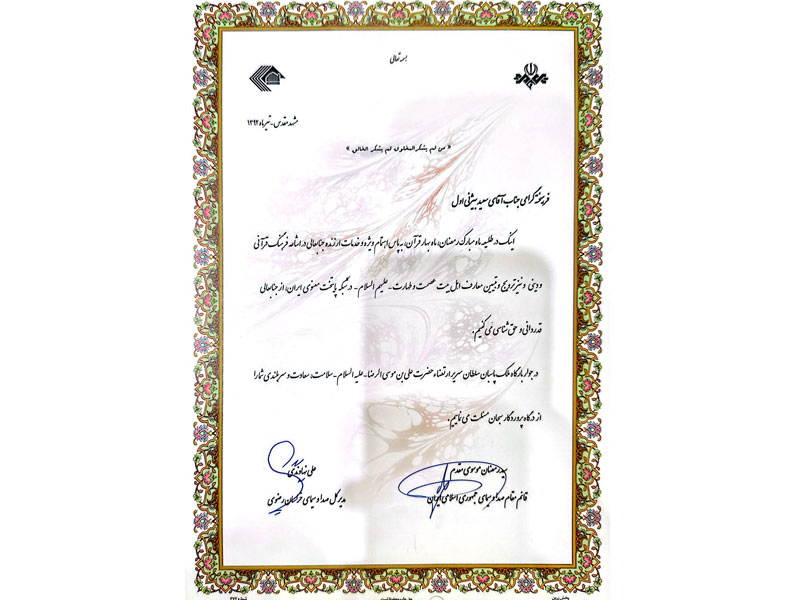 بسمه تعالی
مشهد مقدس - تیرماه ۱۳۹۲
« من لم یشکر المخلوق لم یشکر الخالق »
فرهیخته گرامی جناب آقای سعید بیژنی اول
اینک در طلیعه ماه مبارک رمضان، ماه بهار قرآن، به پاس اهتمام ویژه و خدمات ارزنده جنابعالی در اشاعه فرهنگ قرآنی
و دینی و نیز ترویج و تبیین معارف اهل بیت عصمت و طهارت - علیهم السلام - در شبکه پایتخت معنوی ایران، از جنابعالی
قدردانی و حق شناسی می کنیم.
در جوار بارگاه ملک پاسبان سلطان سریر ارتضاء حضرت علی بن موسی الرضا - علیه السلام - سلامت، سعادت و سربلندی شما را
از درگاه پروردگار سبحان مسئلت می نماییم.
سید رمضان موسوی مقدم
قائم مقام صدا و سیمای جمهوری اسلامی ایران
علی نهاوندی
مدیر کل صدا و سیمای خراسان رضوی